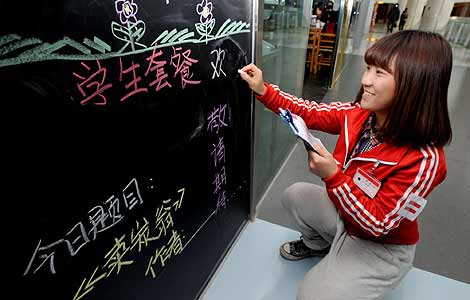 学生套餐 欢
敬请期……
今日题目：
《卖炭翁》
作者：